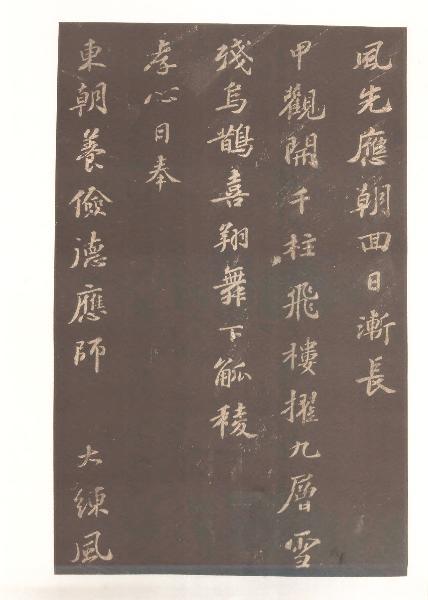 風先應朝回日漸長
甲觀開千柱飛樓擢九層雪
殘烏鵲喜翔舞下觚稜
孝心日奉
東朝養儉德應師　大練風